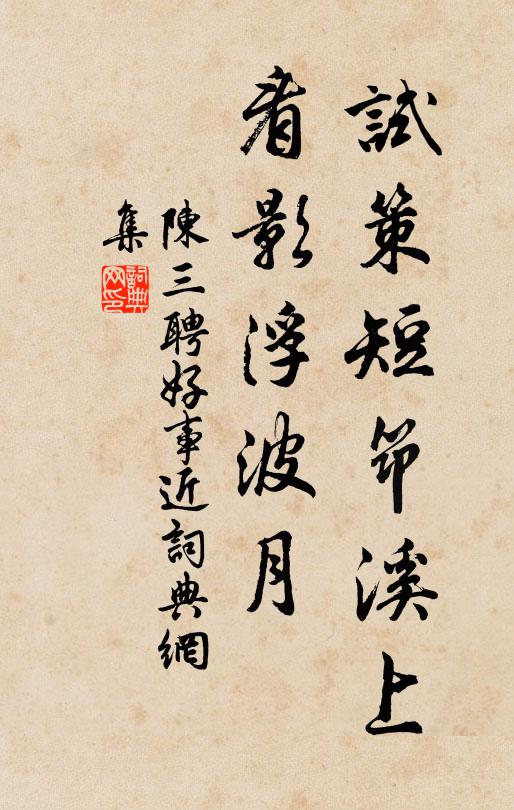 試策短笻溪上
看影浮波月
陳三聘好事近詞典網
集
詞典
网印